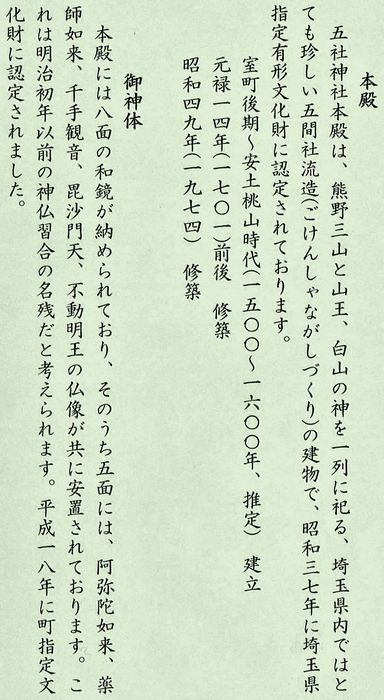 本殿
五社神社本殿は、熊野三山と山王、白山の神を一列に祀る、埼玉県内ではと
ても珍しい五間社流造(ごけんしゃながしづくり)の建物で、昭和三七年に埼玉県
指定有形文化財に認定されております。
室町後期～安土桃山時代(一五〇〇～一六〇〇年、推定) 建立
元禄一四年(一七〇一)前後 修築
昭和四九年(一九七四) 修築
御神体
本殿には八面の和鏡が納められており、そのうち五面には、阿弥陀如来、薬
師如来、千手観音、毘沙門天、不動明王の仏像が共に安置されております。こ
れは明治初年以前の神仏習合の名残だと考えられます。平成一八年に町指定文
化財に認定されました。